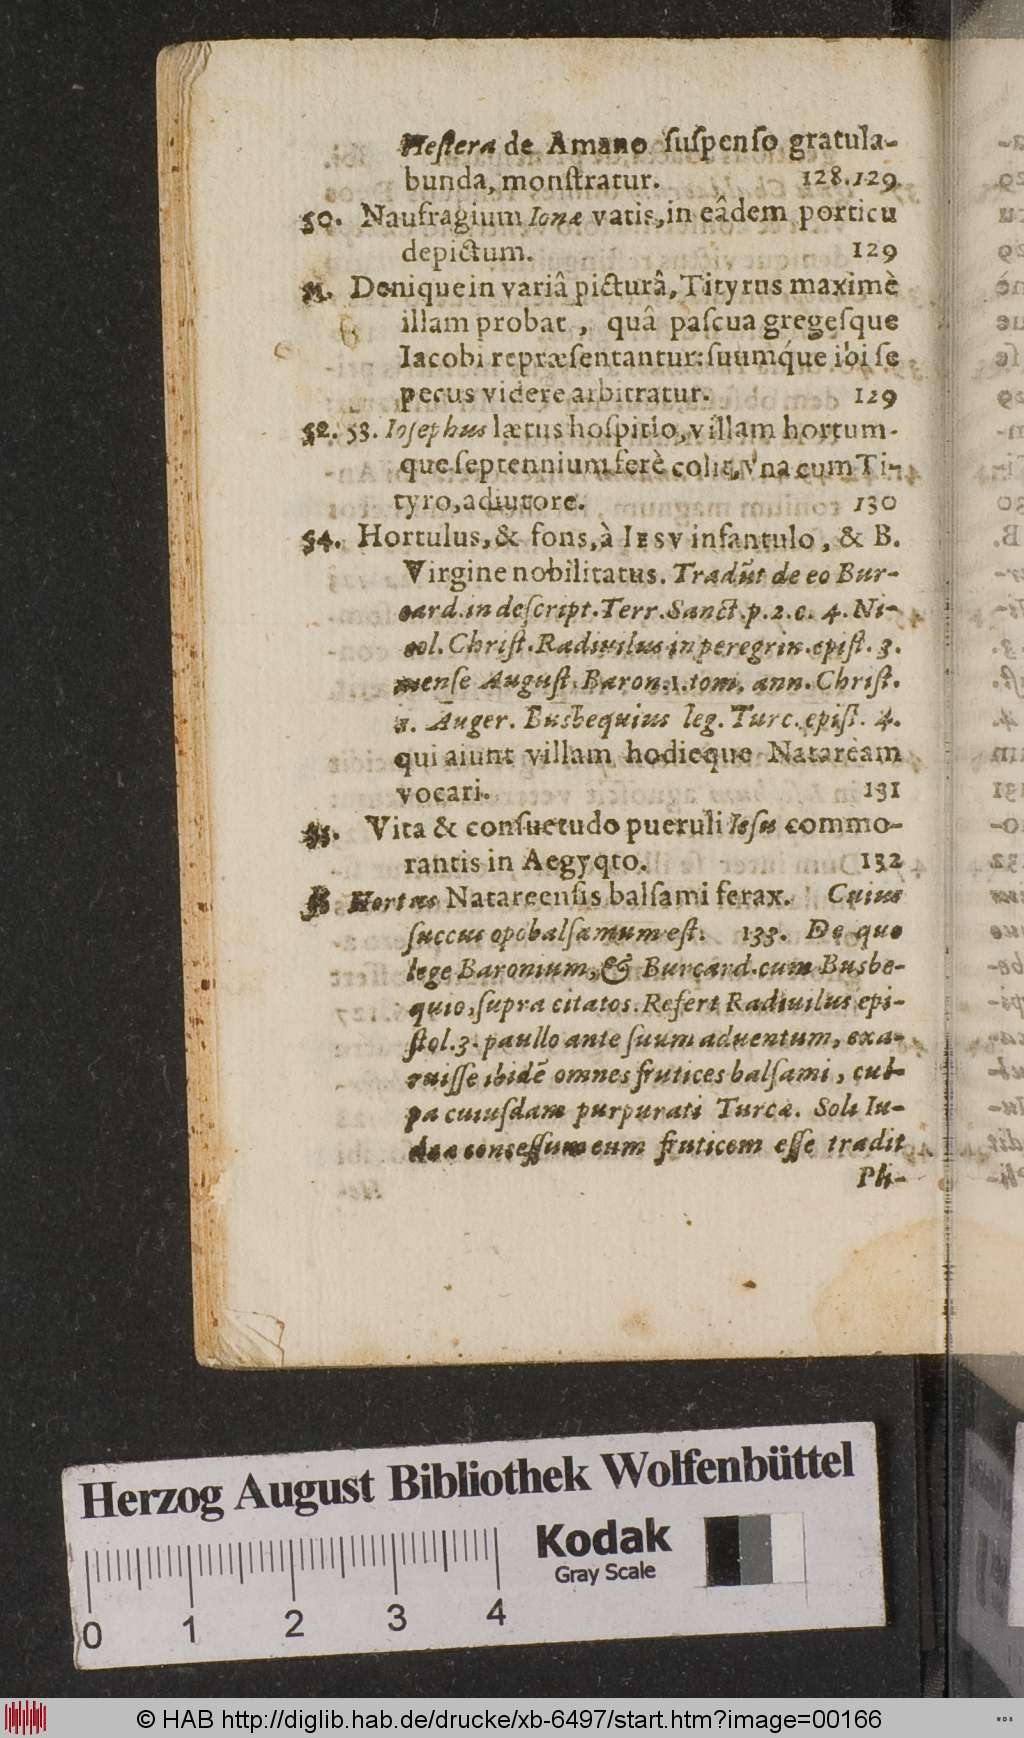 Hestera de Amano ſuſpenſo gratula-
bunda, monſtratur. 128.129
50. Naufragium Ionæ vatis, in eâdem porticu
depictum. 129
51. Denique in variâ picturâ, Tityrus maximè
illam probat, quâ paſcua gregeſque
Iacobi repræſentantur: ſuumq́ue ibi ſe
pecus videre arbitratur. 129
52. 53. Ioſephus lætus hoſpitio, villam hortum-
que ſeptennium ferè colit, vna cum Ti-
tyro, adiutore. 130
54. Hortulus, & fons, à IESV infantulo, & B.
Virgine nobilitatus. Tradūt de eo Bur-
card. in deſcript. Terr. Sanct. p. 2. c. 4. Ni-
col. Chriſt. Radiuilus in peregrin. epiſt. 3.
menſe Auguſt. Baron. 1. tom. ann. Chriſt.
1. Auger. Busbequius leg. Turc. epiſt. 4.
qui aiunt villam hodieque Nataream
vocari. 131
55. Vita & conſuetudo pueruli Ieſu commo-
rantis in Aegyqto. 132
Hortus Natareenſis balſami ferax. Cuius
ſuccus opobalſamum eſt. 133. De quo
lege Baronium, & Burcard. cum Busbe-
quio, ſupra citatos. Refert Radiuilus epi-
ſtol. 3. paullo ante ſuum aduentum, exa-
ruiſſe ibidē omnes frutices balſami, cul-
pa cuiuſdam purpurati Turcæ. Soli Iu-
dææ conceſſum eum fruticem eſſe tradit
Pli-
Herzog August Bibliothek Wolfenbüttel
Kodak
Gray Scale
0 1 2 3 4
© HAB http://diglib.hab.de/drucke/xb-6497/start.htm?image=00166